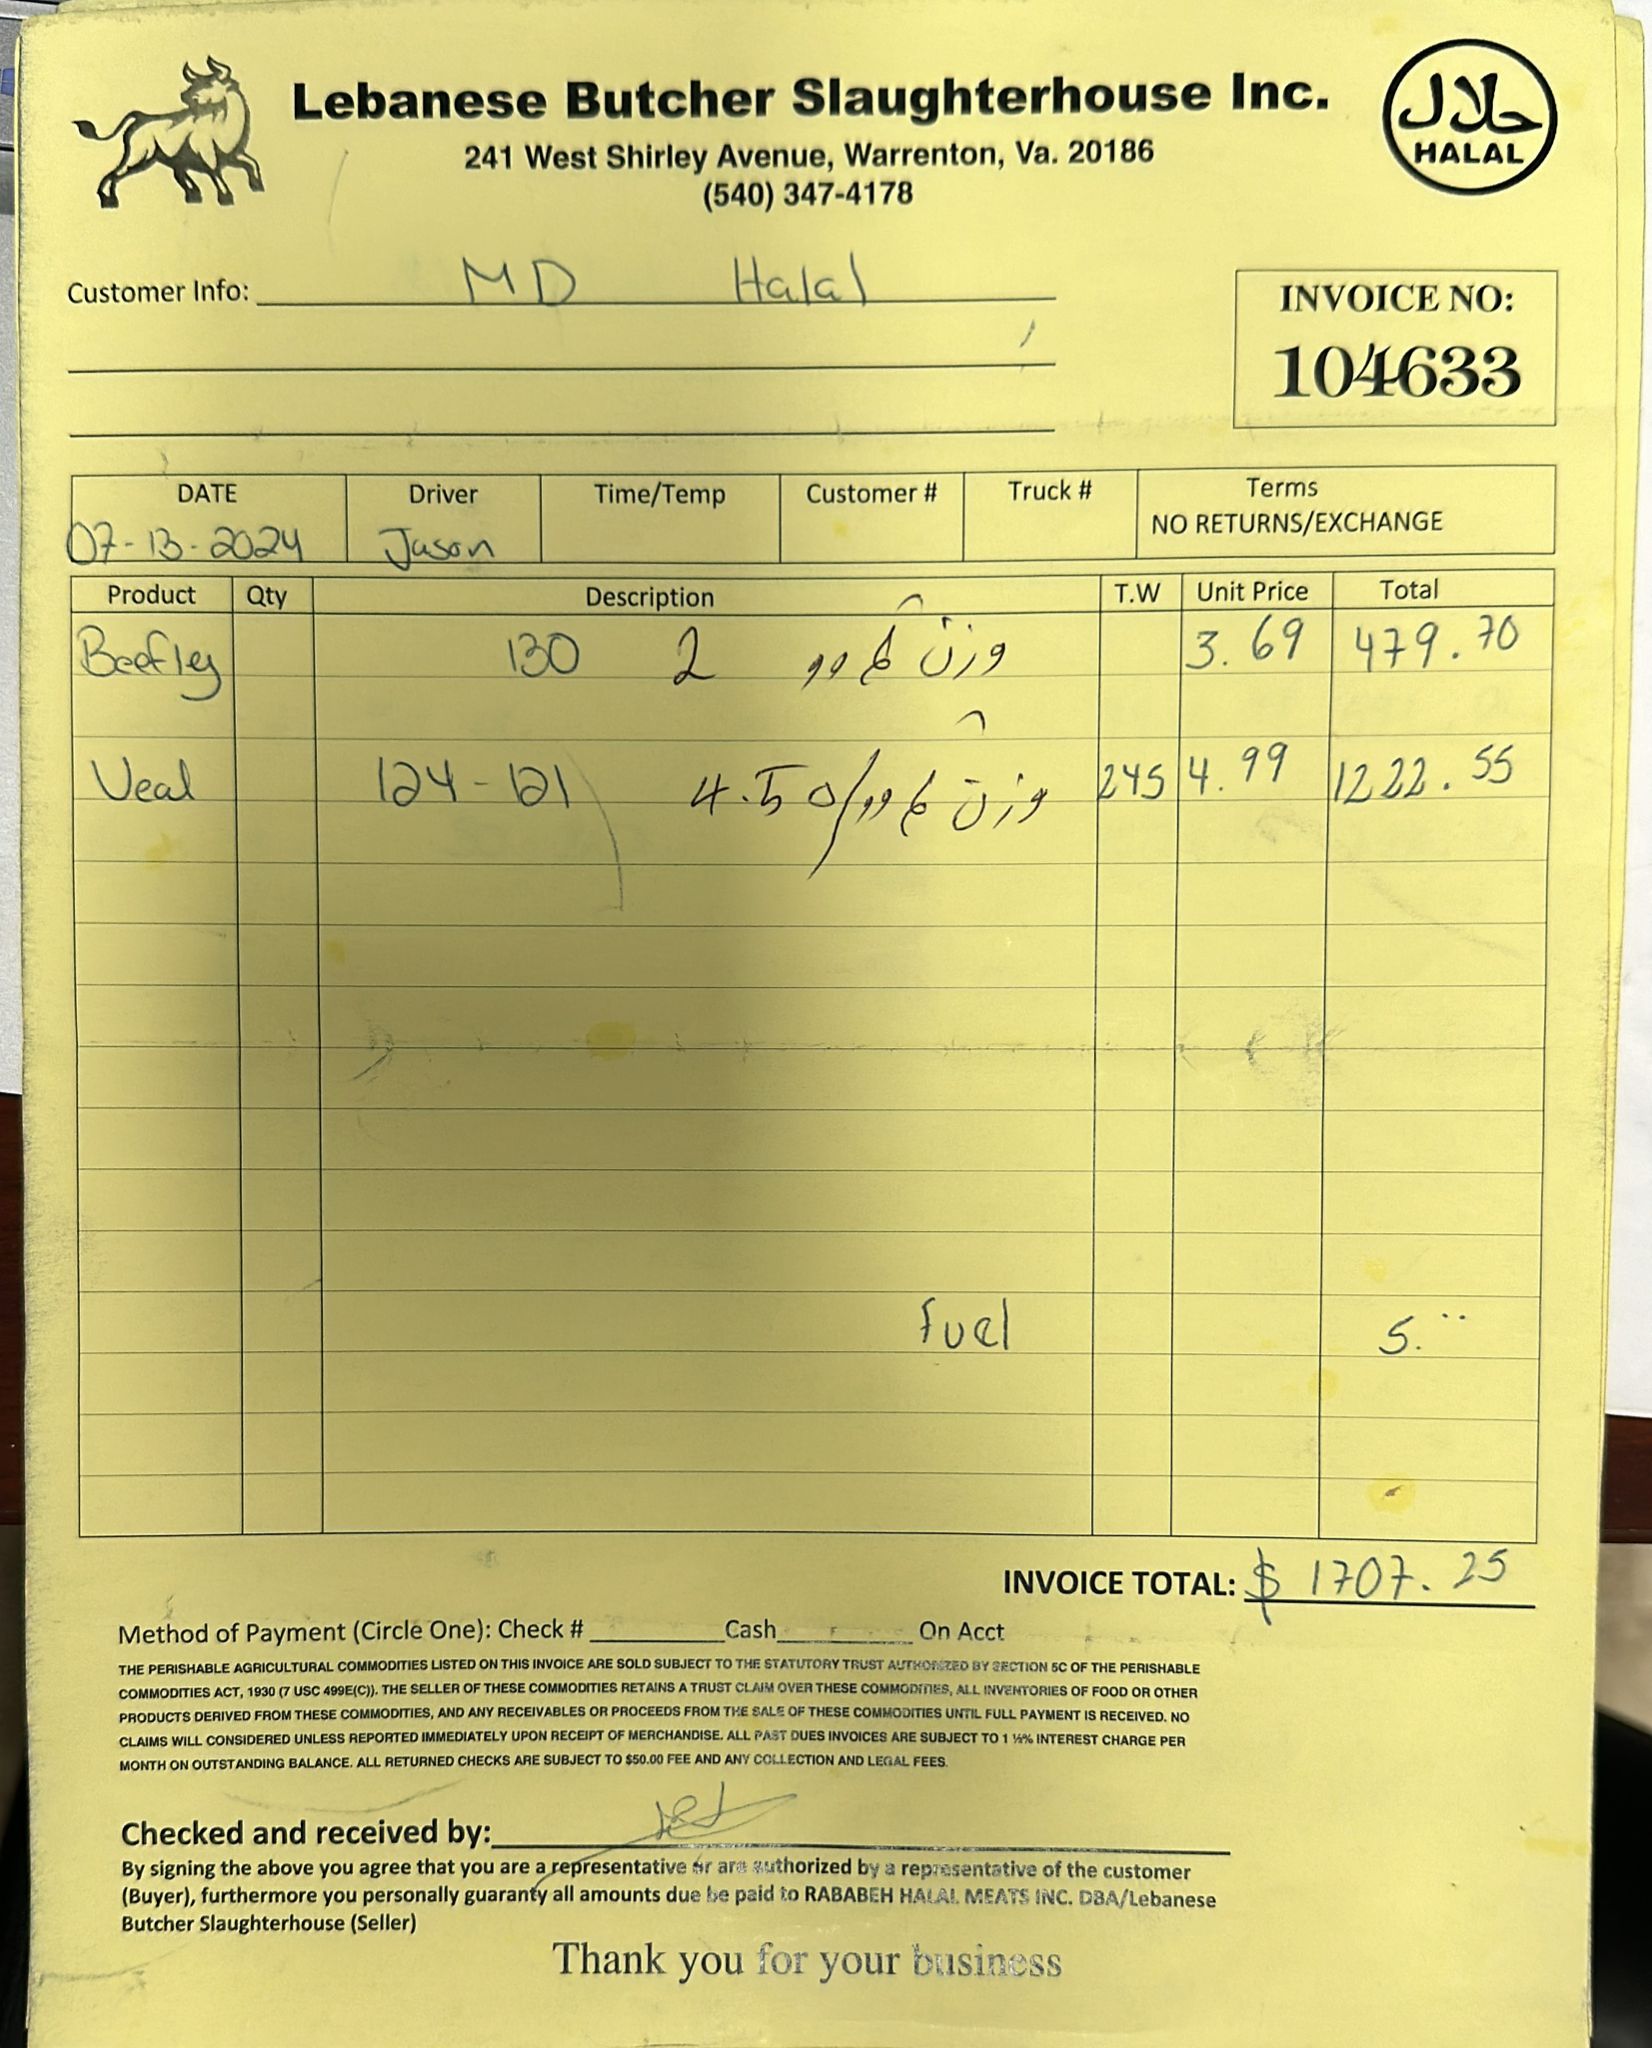 Lebanese Butcher Slaughterhouse Inc.
حلال
HALAL
241 West Shirley Avenue, Warrenton, Va. 20186
(540) 347-4178
Customer Info: MD Halal
INVOICE NO:
104633
DATE Driver Time/Temp Customer # Truck # Terms
NO RETURNS/EXCHANGE
07-13-2024 Jason
Product Qty Description T.W Unit Price Total
Beef leg 130 2 وزن 3.69 479.70
Veal 124-121 4.50/ وزن 245 4.99 1222.55
Fuel 5.
INVOICE TOTAL: $ 1707.25
Method of Payment (Circle One): Check # Cash On Acct
THE PERISHABLE AGRICULTURAL COMMODITIES LISTED ON THIS INVOICE ARE SOLD SUBJECT TO THE STATUTORY TRUST AUTHORIZED BY SECTION 5C OF THE PERISHABLE
COMMODITIES ACT, 1930 (7 USC 499E(C)). THE SELLER OF THESE COMMODITIES RETAINS A TRUST CLAIM OVER THESE COMMODITIES, ALL INVENTORIES OF FOOD OR OTHER
PRODUCTS DERIVED FROM THESE COMMODITIES, AND ANY RECEIVABLES OR PROCEEDS FROM THE SALE OF THESE COMMODITIES UNTIL FULL PAYMENT IS RECEIVED. NO
CLAIMS WILL CONSIDERED UNLESS REPORTED IMMEDIATELY UPON RECEIPT OF MERCHANDISE. ALL PAST DUES INVOICES ARE SUBJECT TO 1 ½% INTEREST CHARGE PER
MONTH ON OUTSTANDING BALANCE. ALL RETURNED CHECKS ARE SUBJECT TO $50.00 FEE AND ANY COLLECTION AND LEGAL FEES.
Checked and received by:
By signing the above you agree that you are a representative or are authorized by a representative of the customer
(Buyer), furthermore you personally guaranty all amounts due be paid to RABABEH HALAL MEATS INC. DBA/Lebanese
Butcher Slaughterhouse (Seller)
Thank you for your business